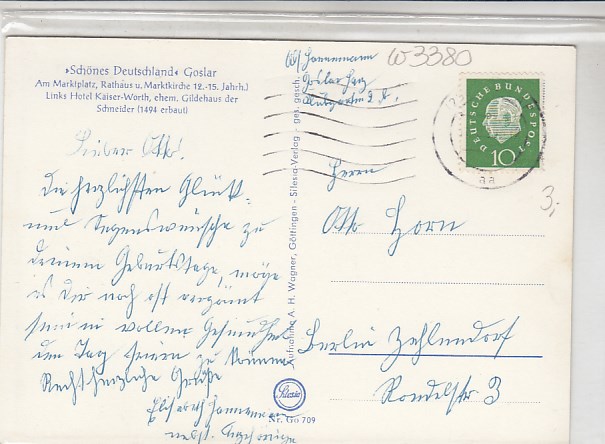 »Schönes Deutschland« Goslar
Am Marktplatz, Rathaus u. Marktkirche 12.-15. Jahrh.)
Links Hotel Kaiser-Worth, ehem. Gildehaus der
Schneider (1494 erbaut)
Lieber Otto!
die herzlichsten Glück-
und Segenswünsche zu
Deinem Geburtstage, möge
es Dir noch oft vergönnt
sein in voller Gesundheit
den Tag feiern zu können
Recht herzliche Grüße
Elisabeth Hannemann
nebst
Aufnahme A. H. Wagner, Göttingen - Silesia-Verlag - ges. gesch.
Silesia
Nr. Go 709
Hannemann
Goslar Harz
W3380
DEUTSCHE BUNDESPOST
10
3,-
Herrn
Otto Horn
Berlin Zehlendorf
Rondellstr 3